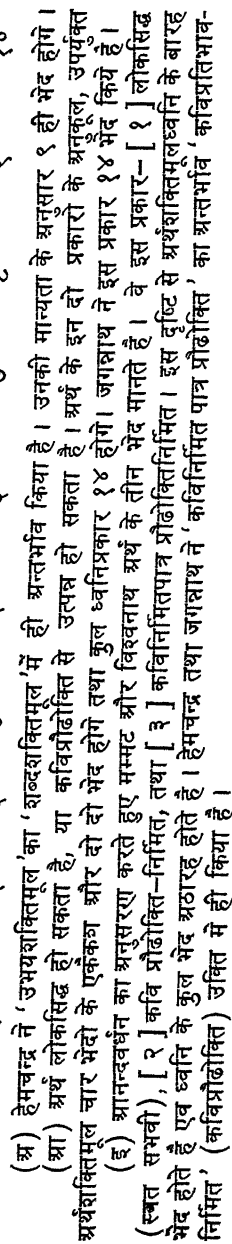 (अ) हेमचन्द्र ने 'उभयशक्तिमूल' का 'शब्दशक्तिमूल' में ही अन्तर्भाव किया है। उनकी मान्यता के अनुसार ९ ही भेद होंगे।
(आ) अर्थ लोकसिद्ध हो सकता है, या कविप्रौढोक्ति से उत्पन्न हो सकता है। अर्थ के इन दो प्रकारों के अनुकूल, उपर्युक्त
अर्थशक्तिमूल चार भेदों के एकैकश और दो दो भेद होंगे तथा कुल ध्वनिप्रकार १४ होंगे। जगन्नाथ ने इस प्रकार १४ भेद किये हैं।
(इ) आनन्दवर्धन का अनुसरण करते हुए मम्मट और विश्वनाथ अर्थ के तीन भेद मानते हैं। वे इस प्रकार— [१] लोकसिद्ध
(स्वत संभवी), [२] कवि प्रौढोक्ति–निर्मित, तथा [३] कविनिर्मितपात्र प्रौढोक्तिनिर्मित। इस दृष्टि से अर्थशक्तिमूलध्वनि के बारह
भेद होते हैं एवं ध्वनि के कुल भेद अठारह होते हैं। हेमचन्द्र तथा जगन्नाथ ने 'कविनिर्मित पात्र प्रौढोक्ति' का अन्तर्भाव 'कविप्रतिभाव-
निर्मित' (कविप्रौढोक्ति) उक्ति में ही किया है।